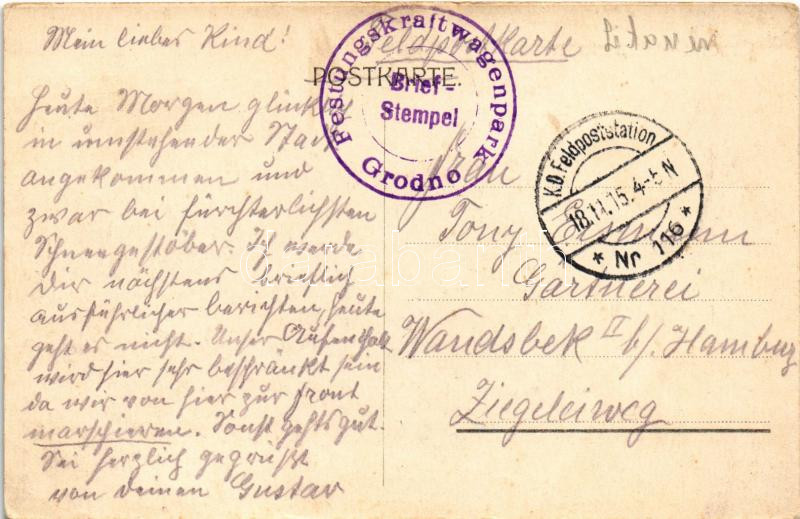 Mein liebes Kind!
Heute Morgen glücklich
in umstehender Stadt
angekommen und
zwar bei fürchterlichsten
Schneegestöber. Ich werde
Dir nächstens brieflich
ausführlicher berichten, heute
geht es nicht. Unser Aufenthalt
wird hier sehr beschränkt sein
da wir von hier zur Front
marschieren. Sonst gehts gut.
Sei herzlich gegrüßt
von Deinem Gustav
Feldpostkarte
POSTKARTE.
Festungskraftwagenpark
Brief-
Stempel
Grodno
K.D. Feldpoststation
18.11.15. 4-5 N
* Nr 116 *
Frau
Tony
Gärtnerei
Wandsbek II b/ Hamburg
Ziegeleiweg
darabanth